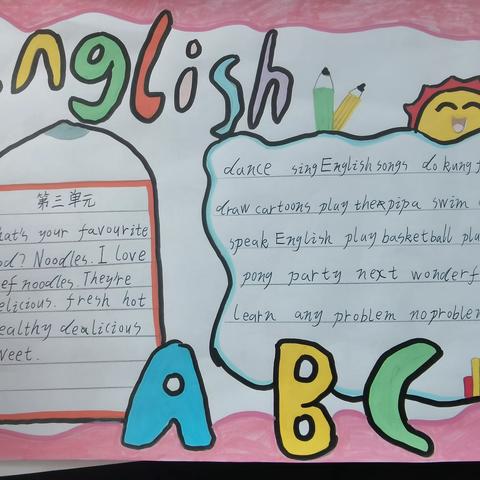 English
第三单元
hat's your favourite
od? Noodles. I love
ef noodles. They're
elicious. fresh hot
ealthy dealicious
weet.
dance sing English songs do kung f
draw cartoons play the pipa swim
speak English play basketball pla
pong party next wonderf
learn any problem no problem
A B C